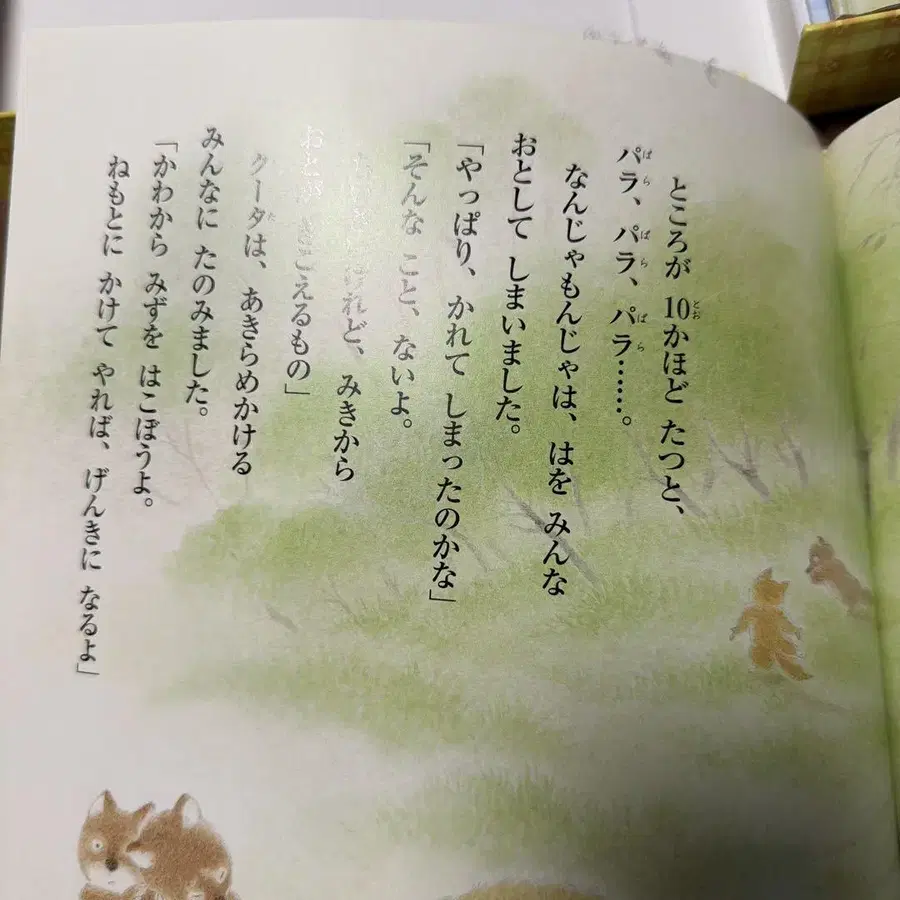 ところが 10かほど たつと、
パラ、パラ、パラ……。
なんじゃもんじゃは、はを みんな
おとして しまいました。
「やっぱり、かれて しまったのかな」
「そんな こと、ないよ。
れど、みきから
おと きこえるもの」
クータは、あきらめかける
みんなに たのみました。
「かわから みずを はこぼうよ。
ねもとに かけて やれば、げんきに なるよ」